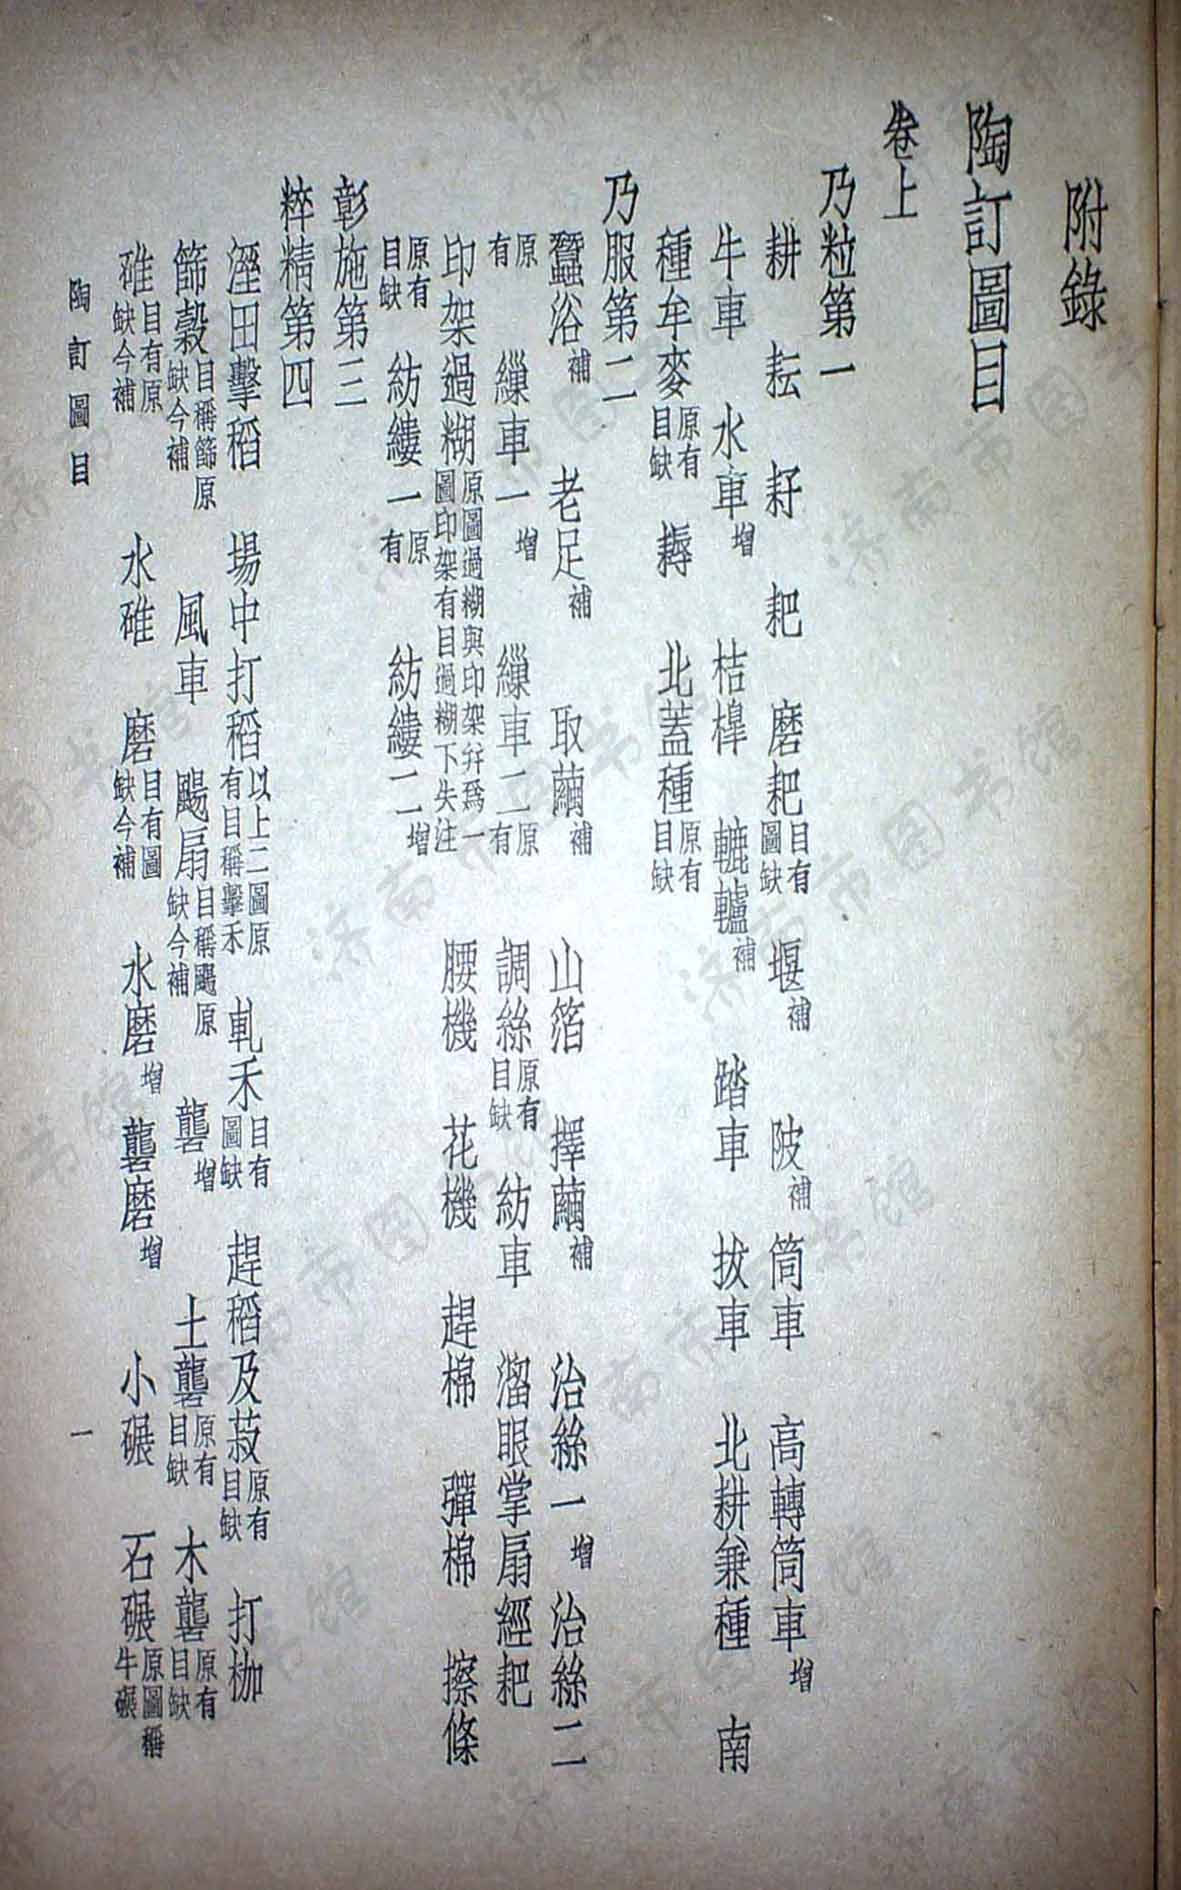 附錄
陶訂圖目
卷上
乃粒第一
耕 耘 耔 耙 磨耙目有圖缺 堰補 陂補 筒車 高轉筒車增
牛車 水車增 桔槔 轆轤補 踏車 拔車 北耕兼種 南
種牟麥原有目缺 耨 北蓋種原有目缺
乃服第二
蠶浴補 老足補 取繭補 山箔 擇繭補 治絲一增 治絲二
原有 繅車一增 繅車二原有 調絲原有目缺 紡車 溜眼掌扇經耙
印架過糊原圖過糊與印架幷爲一圖印架有目過糊下失注 腰機 花機 趕棉 彈棉 擦條
原有目缺 紡縷一原有 紡縷二增
彰施第三
粹精第四
溼田擊稻 場中打稻以上二圖原有目稱擊禾 軋禾目有圖缺 趕稻及菽原有目缺 打枷
篩穀目稱篩原缺今補 風車 颺扇目稱颺原缺今補 礱增 土礱原有目缺 木礱原有目缺
碓目有原缺今補 水碓 磨目有圖缺今補 水磨增 礱磨增 小碾 石碾原圖稱牛碾
陶訂圖目
一
济南市图书馆